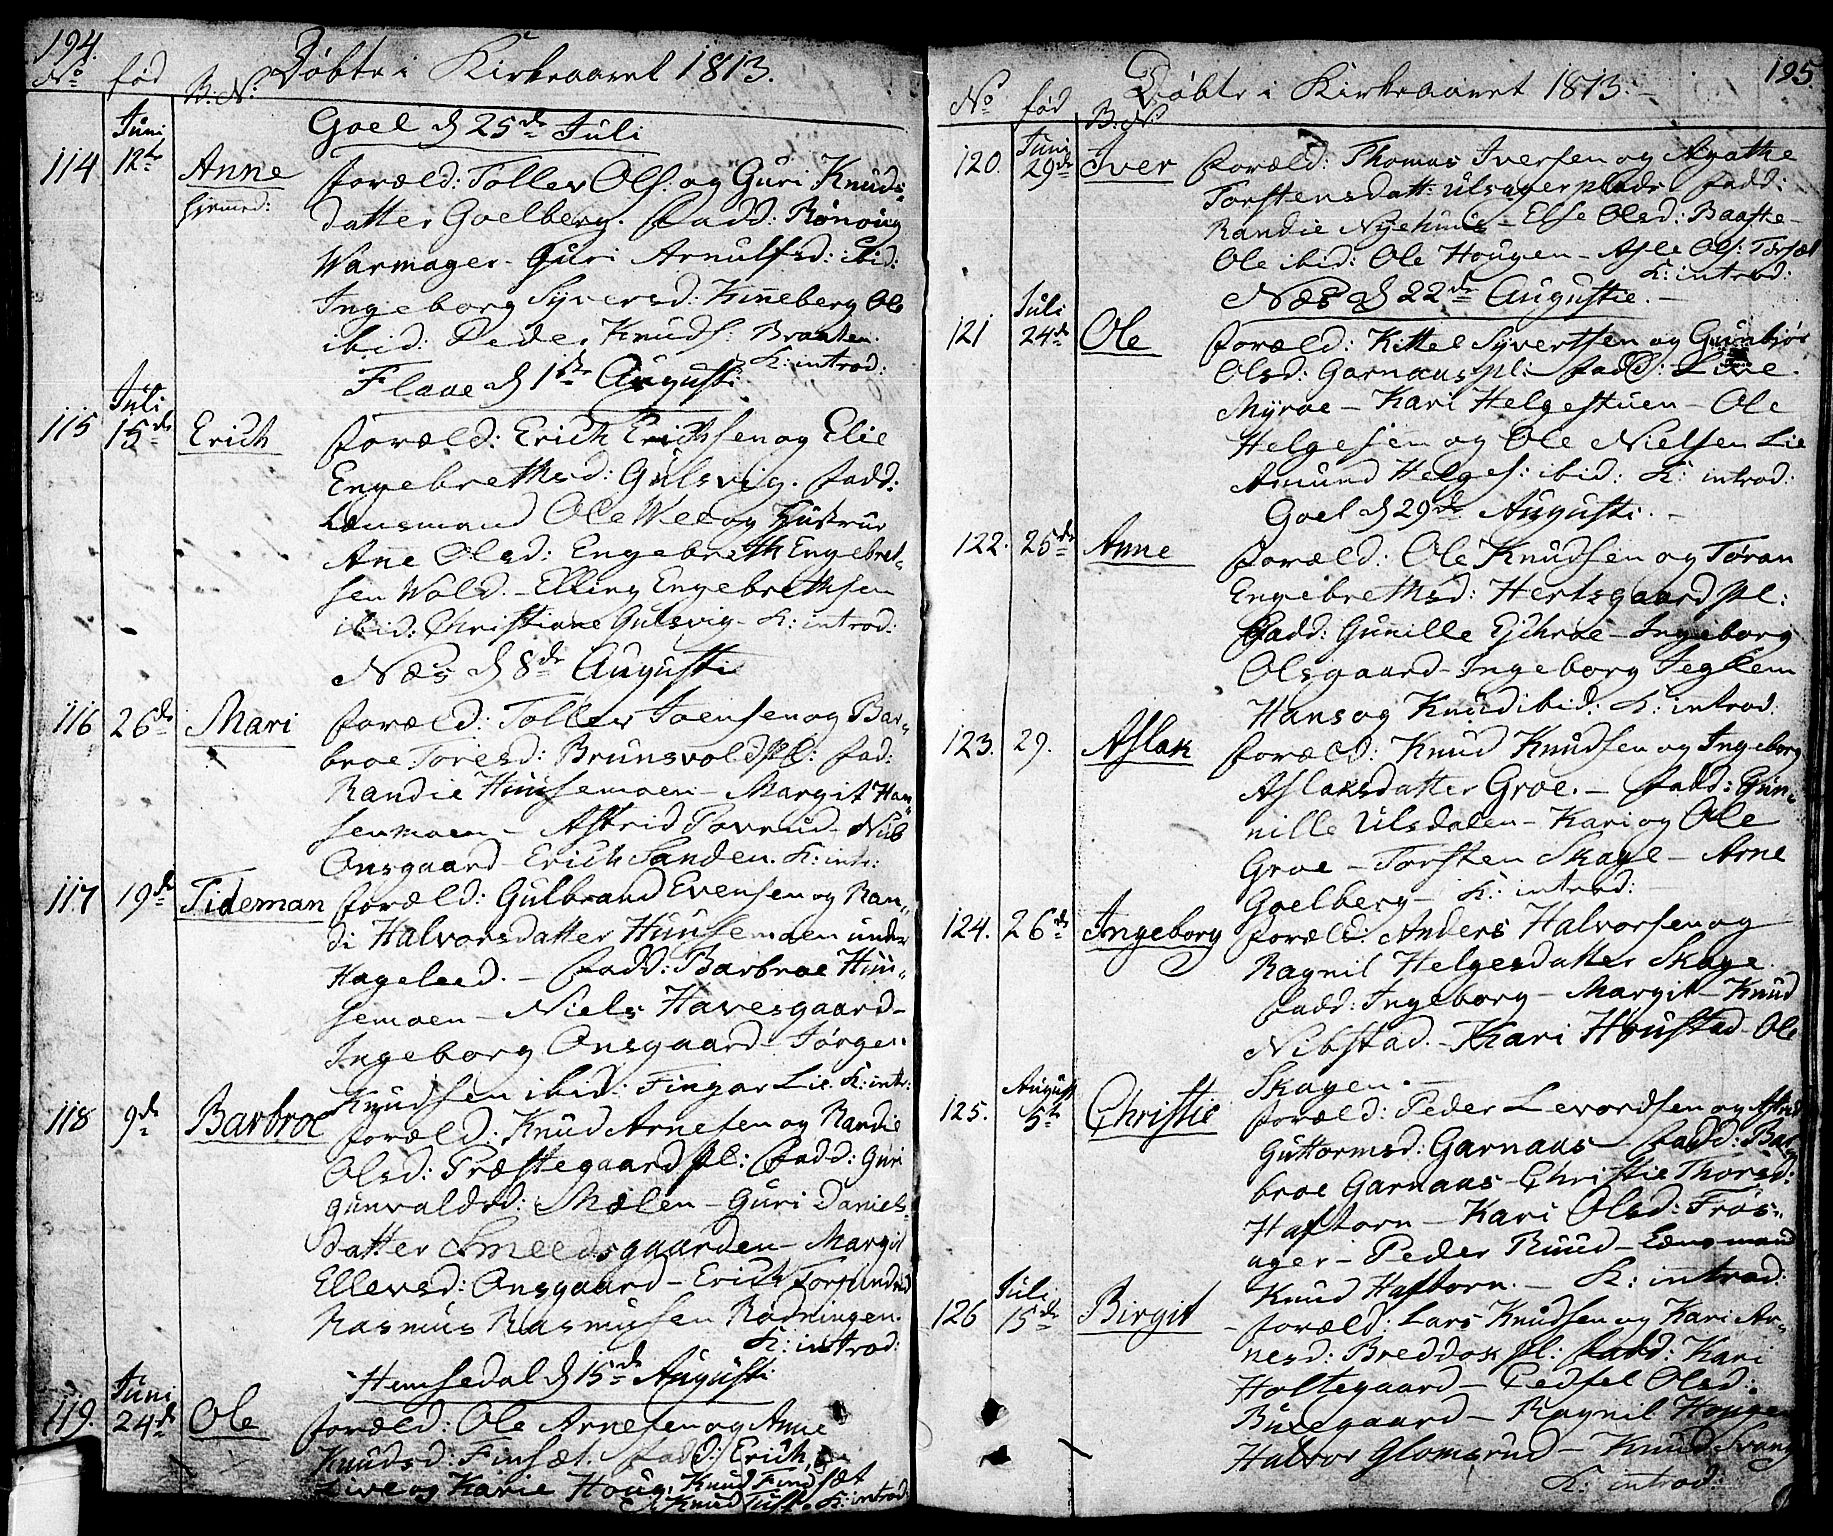 194.
Döbte i Kirkeaaret 1813.
No fød B: N.
Goel d 25de Juli
Juni
114 12te Anne foræld: Tollev Ols: og Guri Knuds-
hjemmed: datter Goelberg. fadd: Rønoug
Warmager - Guri Arnulfsd: ibid:
Ingeborg Syversd: Kinneberg Ole
ibid: Peder Knuds: Braaten.
K: introd:
Flaae d 1ste Augusti
Juli
115 15de Erich foræld: Erich Erichsen og Elie
Engebrethsd: Gulsvig. fadd:
Lensmand Ole Wee og Hustrue
Anne Olsd: Engebreth Engebret-
sen Wold. - Elling Engebrethsen
ibid: Christiane Gulsvig - K: introd:
Næs d 8de Augusti
116 26de Mari foræld: Tollev Joensen og Bar-
broe Toresd: Brunsvold pl: fad:
Randie Huusemoen - Margit Han-
senmoen - Astrid Tovrud - Nub
Onsgaard - Erich Sanden. K: intr:
117 19de Tideman foræld: Gulbrand Evensen og Ran-
di Halvorsdatter Huusemoen under
Hageleed. - fadd: Barbroe Huu-
semoen - Niels Havesgaard -
Ingeborg Onsgaard - Jørgen
Knudsen ibid: Fingar Lie. K: intr:
118 9de Barbroe foræld: Knud Arnesen og Randie
Olsd: Præstegaard pl: fadd: Guri
Gunvaldsd: Mælen - Guri Daniels-
datter Smeedsgaarden - Margit
Ellevsd: Onsgaard - Erich
Rasmus Rasmusen Rødningen.
K: introd:
Hemsedal d 15de Augusti
Juni
119. 24de Ole foræld: Ole Arnesen og Anne
Knudsd: Finsæt. fadd: Erich
Live og Karie Houg. Knud Findsæt
Knud K: introd:
195.
Döbte i Kirkeaaret 1813. -
No fød B: N
Juni
120. 29de Iver foræld: Thomas Iversen og Agathe
Torstensdatt: Ulsager plads. fadd:
Randie Nyehuus - Else Olsd: Baaske -
Ole ibid: Ole Hougen - Asle Ols:
K: introd:
Næs d 22de Augustie. -
Juli
121 24de Ole foræld: Kittel Syvertsen og Gunbjør
Olsd: Garnaas pl: fadd: Live
Myroe - Kari Helgestuen - Ole
Helgesen og Ole Nielsen Lie
Amund Helges: ibid: K: introd:
Goel d 29de Augusti. -
122. 25de Anne foræld: Ole Knudsen og Tøran
Engebrethsd: Hertsgaard pl:
fadd: Gunille Ejchroe - Ingeborg
Olsgaard - Ingeborg Jeglem
Hans og Knud ibid: K: introd:
123. 29. Aslak foræld: Knud Knudsen og Ingeborg
Aslaksdatter Groe. - fadd: Gun-
nille Ulsdalen - Kari og Ole
Groe - Torsten Skage - Arne
Goelberg - K: introd: -
124. 26de Ingeborg foræld: Anders Halvorsen og
Ragnil Helgesdatter Skage.
fadd: Ingeborg - Margit - Knud
Nibstad. - Kari Houstad - Ole
Skagen. -
August
125. 5te Christie foræld: Peder Levordsen og Astrid
Guttormsd: Garnaas - fadd: Bar-
broe Garnaas - Christie Thorsd:
Haftorn - Kari Olsd: Frøs-
ager - Peder Ruud - Lensmand
Knud Haftorn. - K: introd:
Juli
126 15de Birgit - foræld: Lars Knudsen og Kari Ar-
nesd: Breddok pl: fadd: Kari
Holtegaard - Pedfel Olsd:
Buxegaard - Ragnil Houge
Halvor Glomsrud - Knud Svang
K: introd: